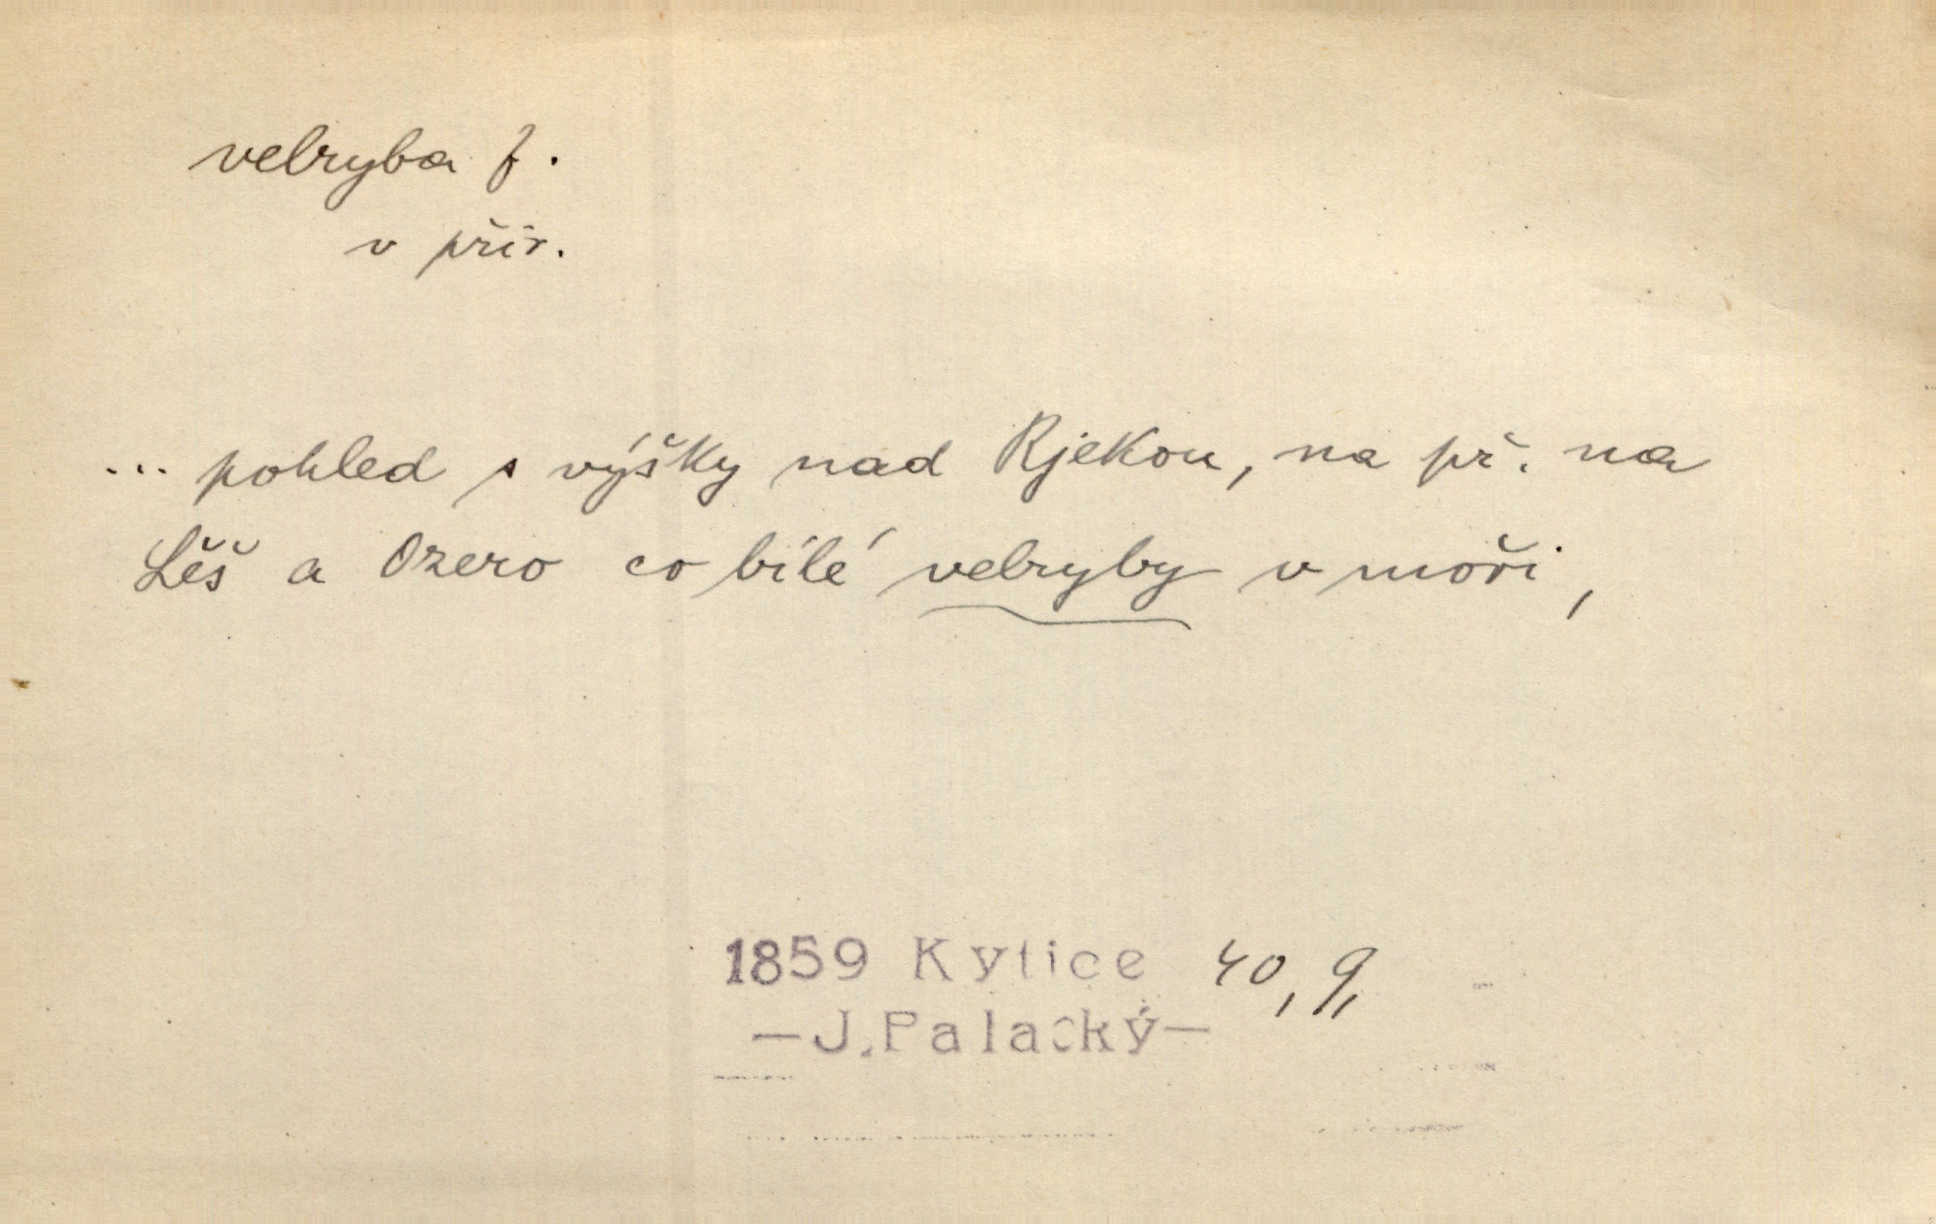 velryba f.
v přir.
... pohled s výšky nad Rjekou, na př. na
Lěš a Ozero co bílé velryby v moři,
1859 Kytice 40, 9,
—J.Palacký—